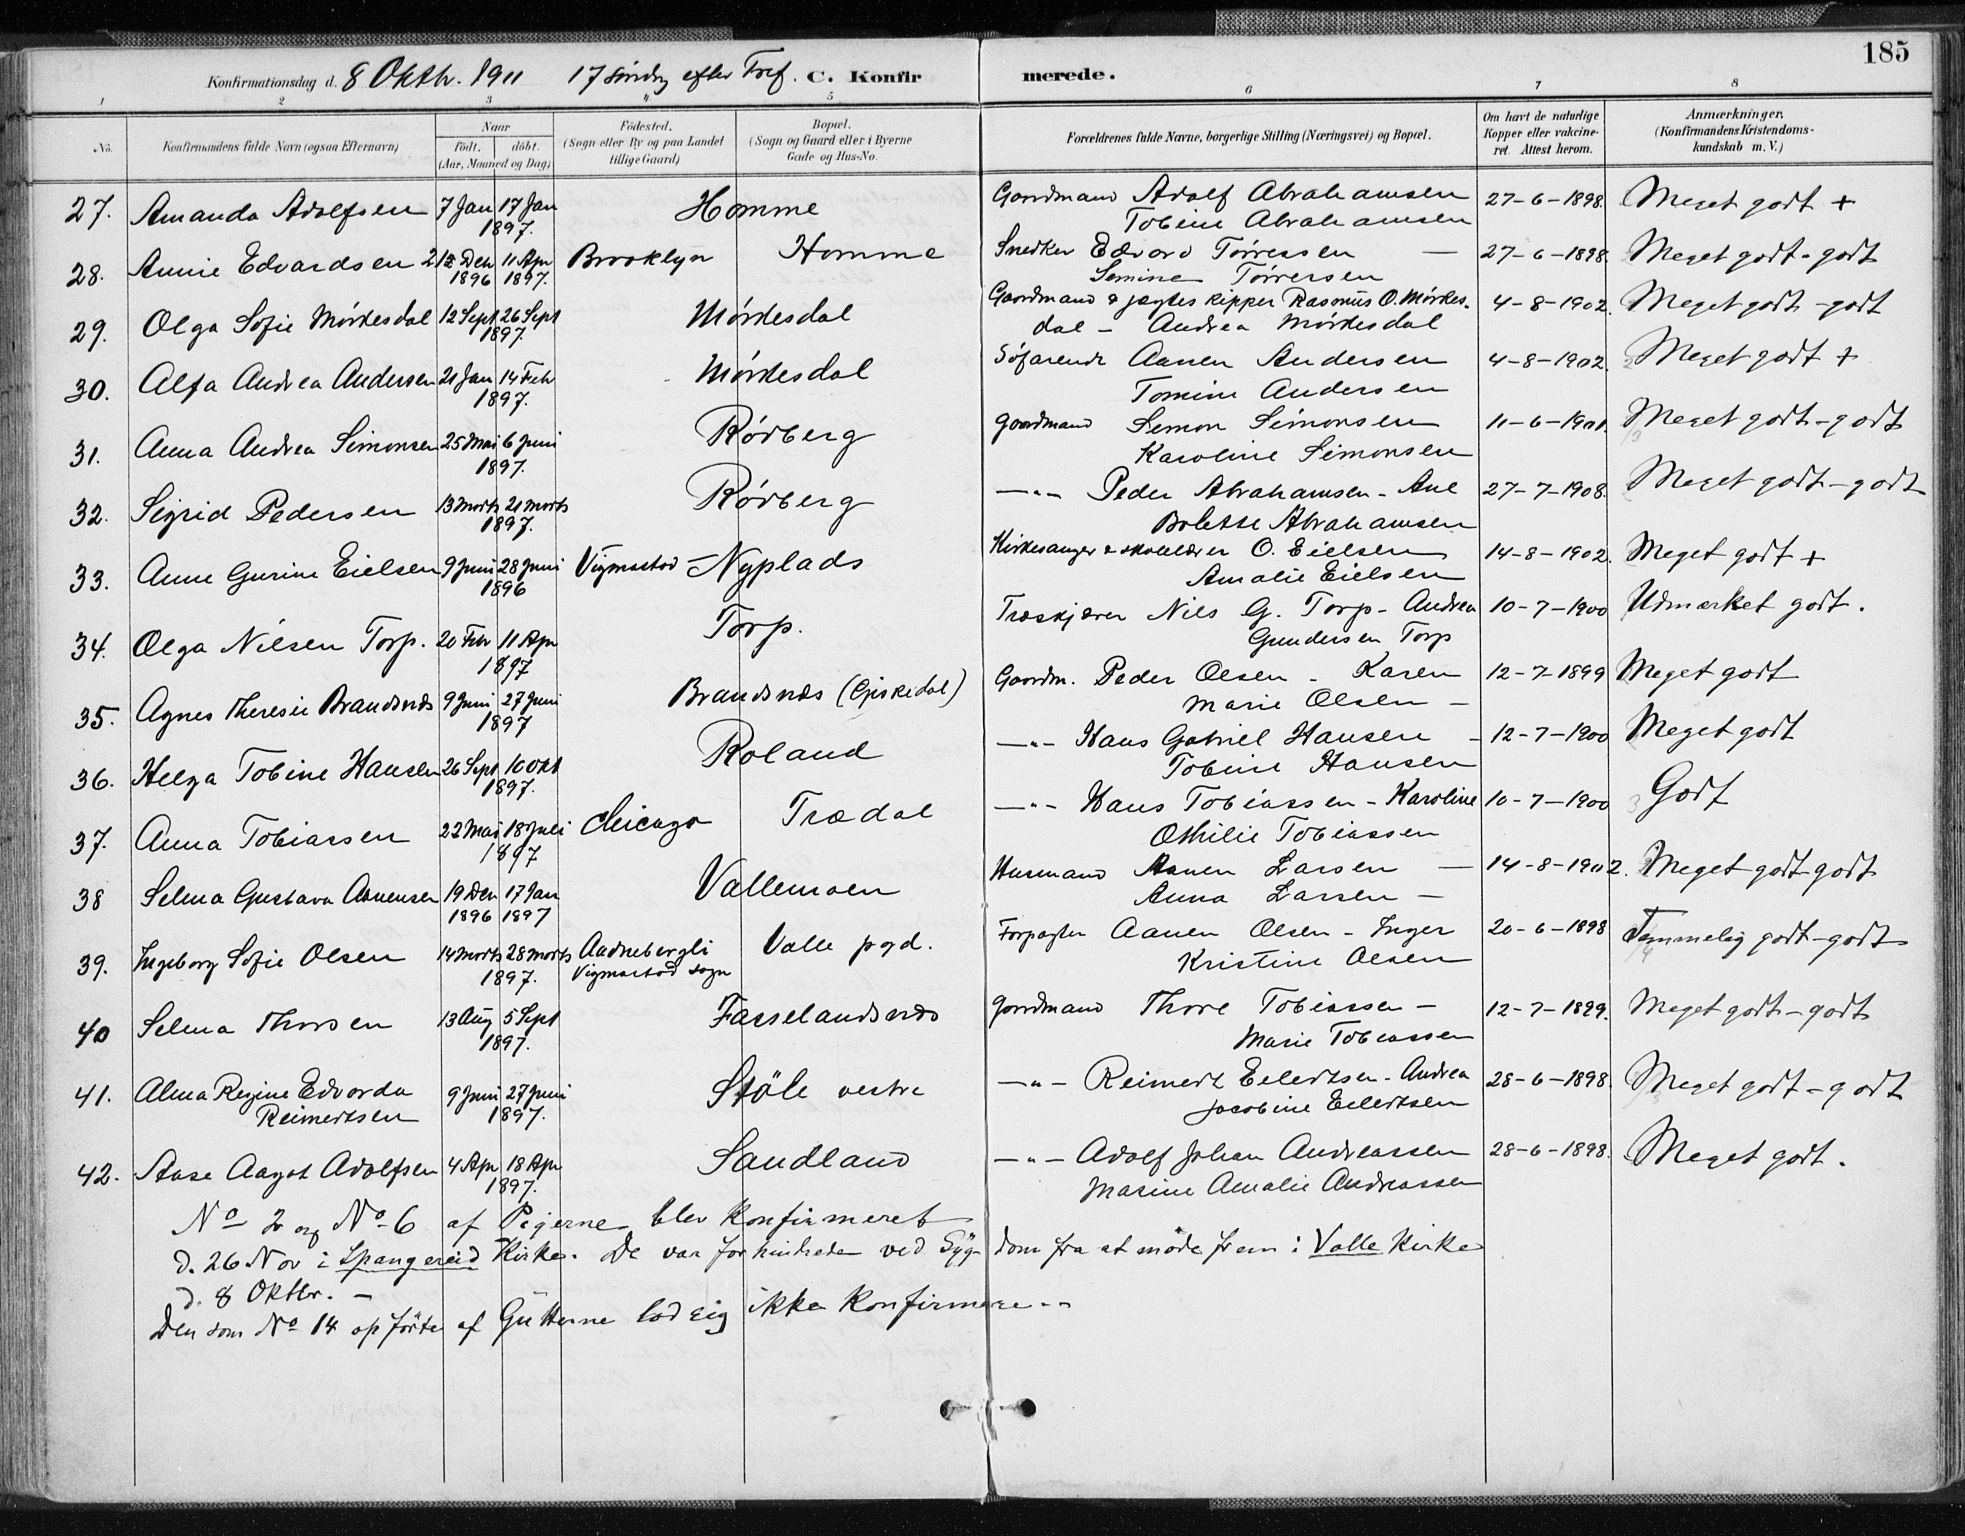 185
Konfirmationsdag d. 8 Oktbr. 1911 17 Søndag efter Tref. C. Konfirmerede.
1 2 3 4 5 6 7 8
No. Konfirmandens fulde Navn (ogsaa Efternavn) Naar født. døbt. (Aar, Maaned og Dag) Fødested. (Sogn eller By og paa Landet tillige Gaard) Bopæl. (Sogn og Gaard eller i Byerne Gade og Hus-No. Forældrenes fulde Navne, borgerlige Stilling (Næringsvei) og Bopæl. Om havt de naturlige Kopper eller vakcineret. Attest herom. Anmærkninger. (Konfirmandens Kristendomskundskab m. V.)
27. Amanda Adolfsen 7 Jan 17 Jan 1897. Homme Gaardmand Adolf Abrahamsen 27-6-1898. Meget godt +
Tobine Abrahamsen
28. Annie Edvardsen Dec 1896 11 Apr 1897. Brooklyn Homme Snedker Edvard Tørressen — 27-6-1898. Meget godt - godt
Semine Tørresen
29. Olga Sofie Mørkesdal 12 Sept 26 Sept 1897. Mørkesdal Gaardmand & jægteskipper Rasmus O. Mørkes- 4-8-1902. Meget godt - godt
dal - Andrea Mørkesdal
30. Alfa Andrea Andersen 21 Jan 14 Feb 1897. Mørkesdal Søfarende Aanen Andersen 4-8-1902. Meget godt +
Tomine Andersen
31. Anna Andrea Simonsen 25 Mai 6 Juni 1897. Rødberg Gaardmand Simon Simonsen 11-6-1901. Meget godt - godt
Karoline Simonsen
32. Sigrid Pedersen 13 Marts 21 Marts 1897. Rødberg —"— Peder Abrahamsen - Ane 27-7-1908. Meget godt - godt
Bolette Abrahamsen
33. Anne Gurine Eielsen 9 Juni 28 Juni 1896 Vigmostad - Nyplads Kirkesanger & skolelærer O. Eielsen 14-8-1902. Meget godt +
Amalie Eielsen
34. Olga Nilsen Torp. 20 Feb 11 Apr 1897 Torp. Træskjærer Nils G. Torp - Andrea 10-7-1900 Udmærket godt.
Gundersen Torp
35. Agnes Theresie Brandsnæs 9 Juni 27 Juni 1897 Brandsnæs (Gjiskedal) Gaardm. Peder Olsen - Karen 12-7-1899 Meget godt
Marie Olsen —
36. Helga Tobine Hansen 26 Sept 10 Okt 1897. Roland —"— Hans Gabriel Hansen - 12-7-1900 Meget godt
Tobine Hansen
37. Anna Tobiassen 22 Mai 18 Juli 1897 Chicago Trædal —"— Hans Tobiassen - Karoline 10-7-1900 Godt
Othilie Tobiassen
38 Selma Gustava Aanensen 19 Dec 1896 17 Jan 1897 Vallemoen Husmand Aanen Larsen — 14-8-1902. Meget godt - godt
Anna Larsen —
39. Ingeborg Sofie Olsen 14 Marts 28 Marts 1897. Aadnebergli Vigmostad sogn Valle pgd. Forpagter Aanen Olsen - Inger 20-6-1898 Temmelig godt - godt
Kristine Olsen
40 Selma Thorsen 13 Aug 5 Sept 1897. Fasselandsnæs Gaardmand Thore Tobiassen — 12-7-1899. Meget godt - godt
Marie Tobiassen
41. Alma Regine Edvarda 9 Juni 27 Juni 1897. Støle vestre —"— Reimert Eilertsen - Andrea 28-6-1898. Meget godt - godt
Reimertsen Jacobine Eilertsen
42. Aase Aagot Adolfsen 4 Apr 18 Apr 1897. Sandland —"— Adolf Johan Andreassen 28-6-1898. Meget godt.
Marine Amalie Andreassen
No 2 og No 6 af Pigerne blev konfirmeret
d. 26 Nov i Spangereid Kirke. De var forhindrede ved Sygdom fra at møde frem i Valle Kirke
d. 8 Oktbr. —
Den som No 14 opførte af Gutterne lod sig ikke konfirmere. -